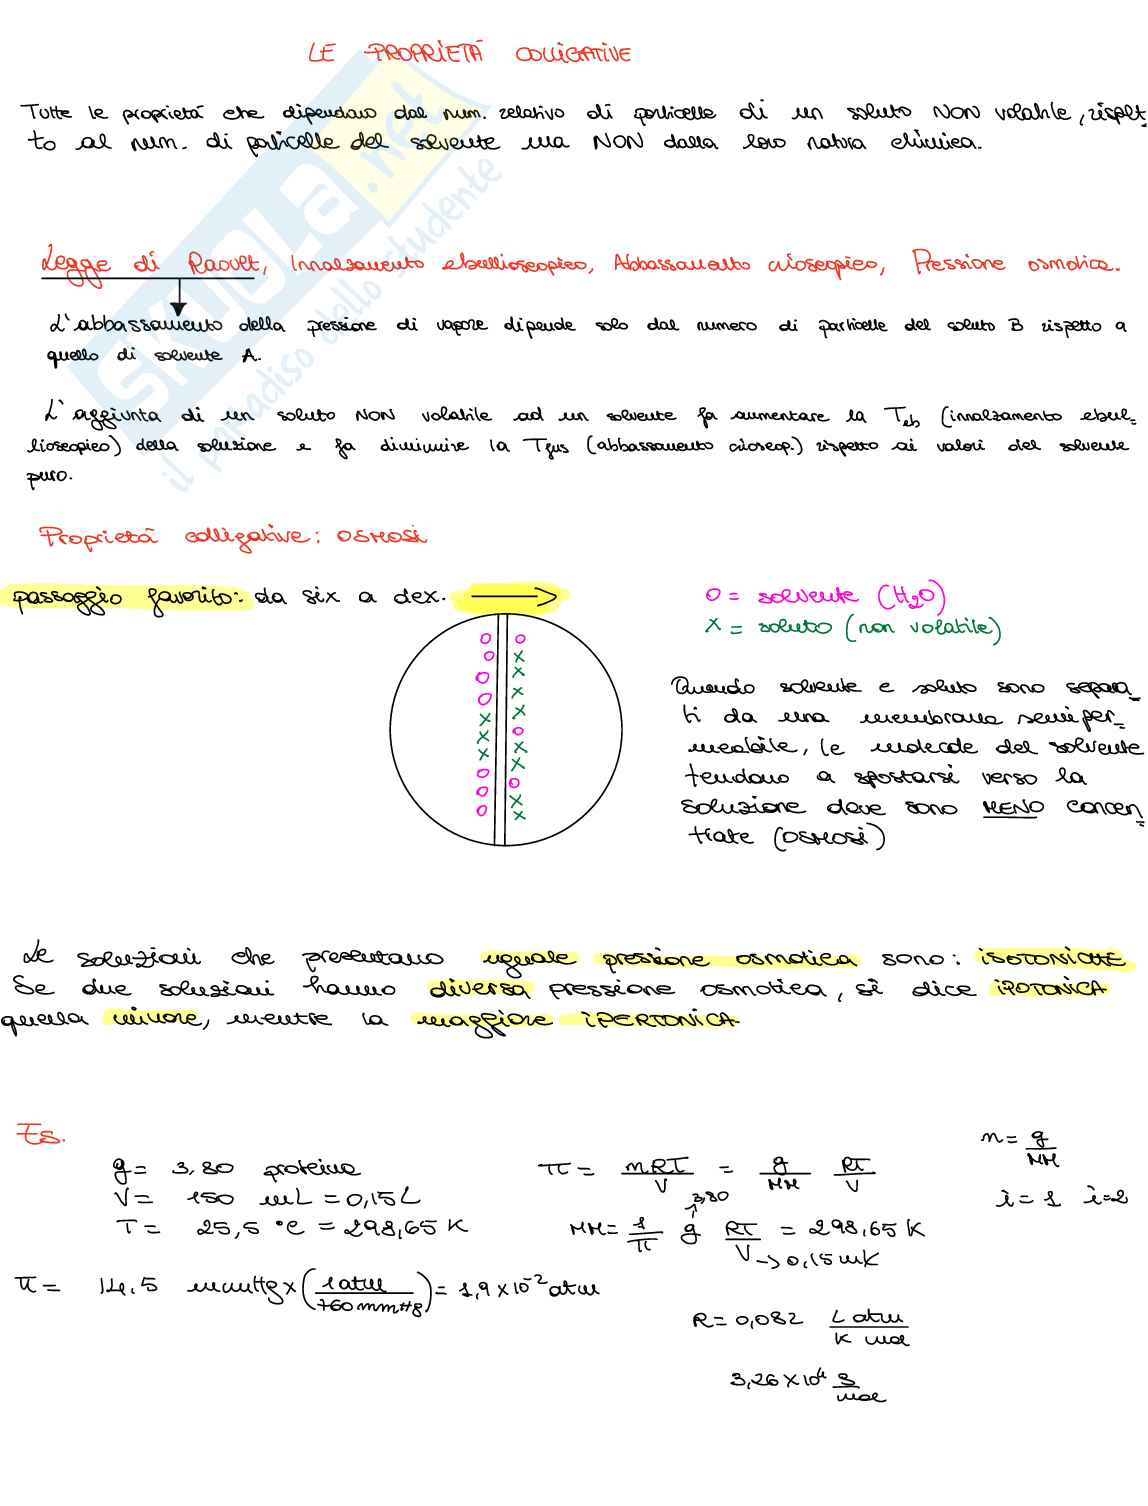 LE PROPRIETÀ COLLIGATIVE
Tutte le proprietà che dipendano dal num. relativo di particelle di un soluto NON volatile, rispet-
to al num. di particelle del solvente ma NON dalla loro natura chimica.
Legge di Raoult, Innalzamento ebullioscopico, Abbassamento crioscopico, Pressione osmotica.
L'abbassamento della pressione di vapore dipende solo dal numero di particelle del soluto B rispetto a
quello di solvente A.
L'aggiunta di un soluto NON volatile ad un solvente fa aumentare la Teb (innalzamento ebul-
lioscopico) della soluzione e fa diminuire la Tfus (abbassamento crioscop.) rispetto ai valori del solvente
puro.
Proprietà colligative: OSMOSI
passaggio favorito: da six a dex. →
O = solvente (H2O)
X = soluto (non volatile)
Quando solvente e soluto sono separa-
ti da una membrana semiper-
meabile, le molecole del solvente
tendono a spostarsi verso la
soluzione dove sono MENO concen-
trate (OSMOSI)
Le soluzioni che presentano uguale pressione osmotica sono: ISOTONICHE
Se due soluzioni hanno diversa pressione osmotica, si dice IPOTONICA
quella minore, mentre la maggiore IPERTONICA.
Es.
g = 3,80 proteina
V = 150 mL = 0,15 L
T = 25,5 °C = 298,65 K
π = 14,5 mmHg x (1 atm / 760 mmHg) = 1,9 x 10⁻² atm
π = nRT / V = g / MM RT / V
3,80
MM = 1 / π g RT / V = 298,65 K
→ 0,15 mK
R = 0,082 L atm / K mol
3,26 x 10⁴ g / mol
n = g / MM
i = 1 i = 2
SKUOLA.net
il paradiso dello studente